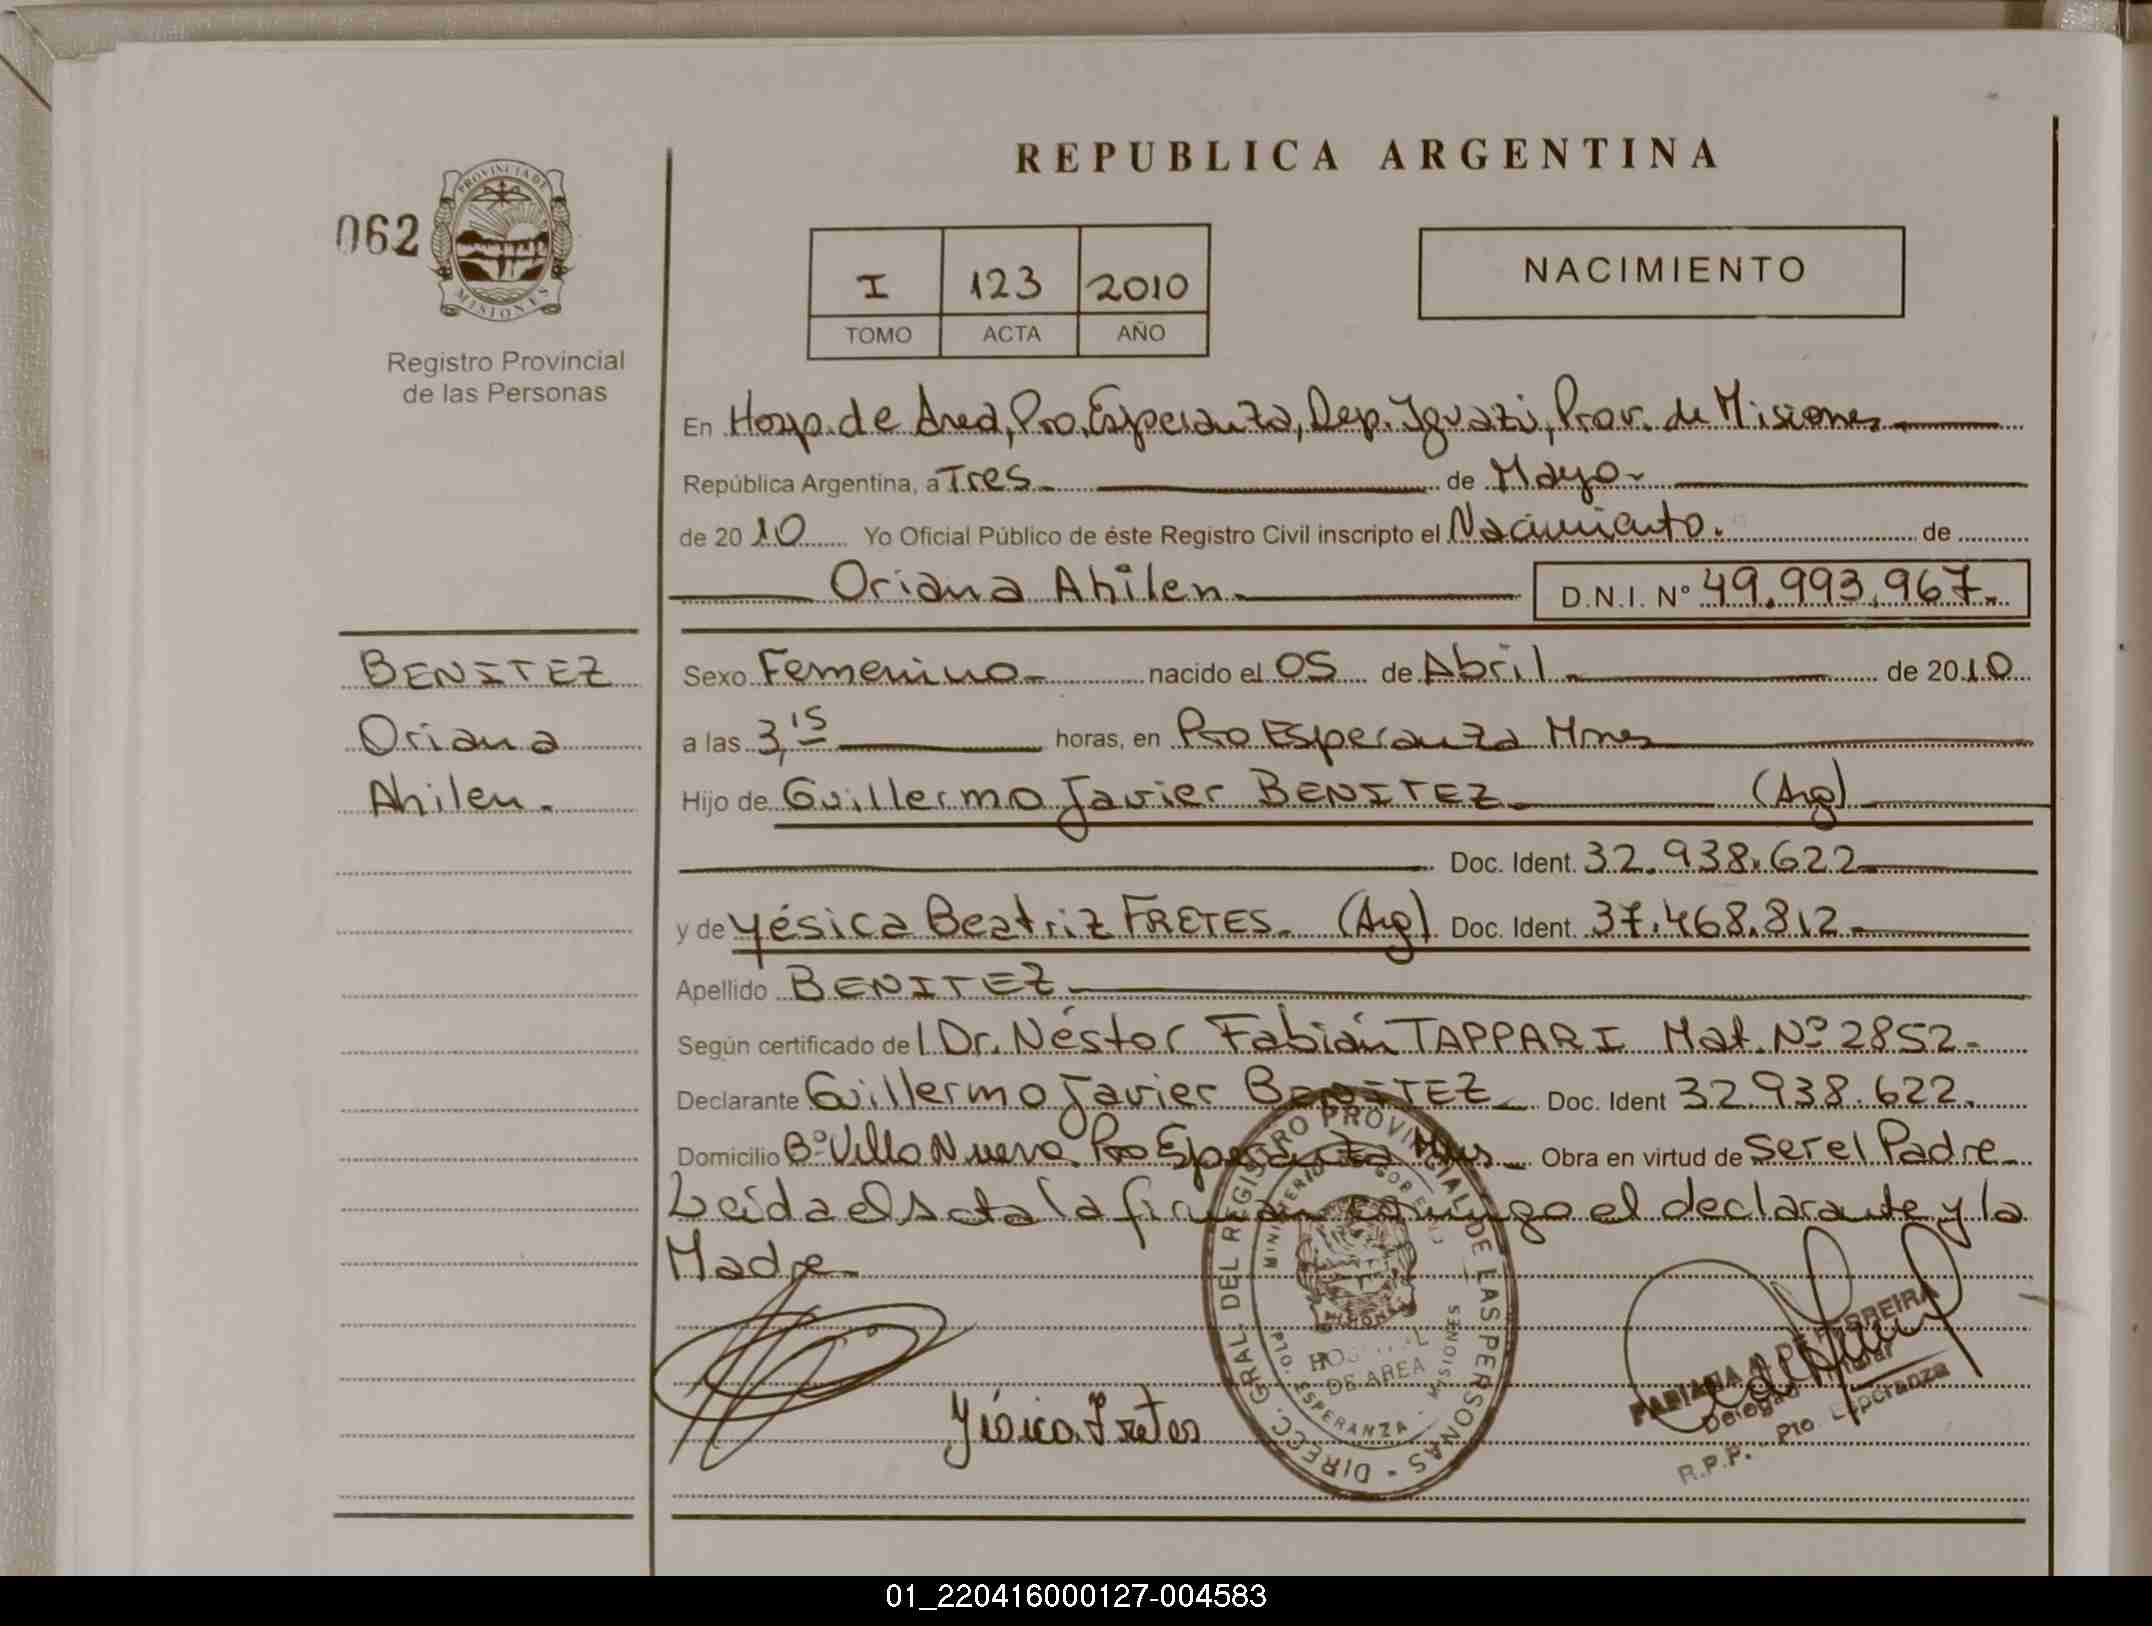 REPUBLICA ARGENTINA
062
PROVINCIA DE
MISIONES
Registro Provincial
de las Personas
I 123 2010
TOMO ACTA AÑO
NACIMIENTO
En Hosp. de Area, Pto. Esperanza, Dep. Iguazú, Prov. de Misiones
República Argentina, a Tres de Mayo
de 2010 Yo Oficial Público de éste Registro Civil inscripto el Nacimiento. de
Oriana Ahilen D.N.I. Nº 49.993.967.
BENITEZ
Oriana
Ahilen.
Sexo Femenino nacido el 05 de Abril de 2010
a las 3,15 horas, en Pto Esperanza Mnes
Hijo de Guillermo Javier BENITEZ (Arg)
Doc. Ident. 32.938.622
y de Yésica Beatriz FRETES. (Arg) Doc. Ident. 37.468.812
Apellido BENITEZ
Según certificado del Dr. Néstor Fabián TAPPARI Mat. Nº 2852
Declarante Guillermo Javier BENITEZ Doc. Ident 32.938.622.
Domicilio Bº Villa Nueva Pto Esperanza Mnes Obra en virtud de ser el Padre
Leida el Acta la firman conmigo el declarante y la
Madre
Yésica Fretes
DIRECC. GRAL. DEL REGISTRO PROVINCIAL DE LAS PERSONAS
MINISTERIO
DE AREA
PTO. ESPERANZA - MISIONES
FERREIRA
R.P.P. Pto Esperanza
01_220416000127-004583